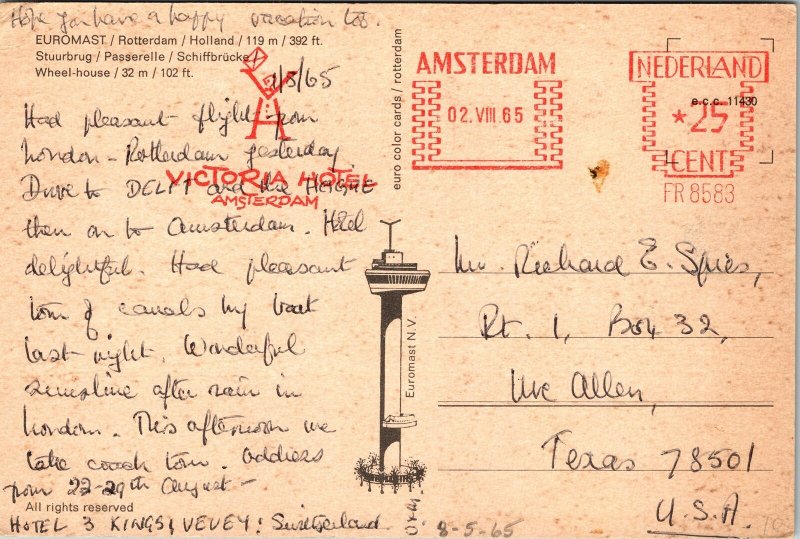 Hope you have a happy vacation too.
EUROMAST / Rotterdam / Holland / 119 m / 392 ft.
Stuurbrug / Passerelle / Schiffbrücke /
Wheel-house / 32 m / 102 ft.
1/8/65
Had pleasant flight from
London - Rotterdam yesterday.
Drive to DELFT and the HAGUE
then on to Amsterdam. Hotel
delightful. Had pleasant
tour of canals by boat
last night. Wonderful
sunshine after rain in
London. This afternoon we
take coach tour. Address
from 22-29th August -
All rights reserved
HOTEL 3 KINGS, VEVEY: Switzerland.
VICTORIA HOTEL
AMSTERDAM
euro color cards / rotterdam
Euromast N.V.
AMSTERDAM
02.VIII.65
NEDERLAND
e.c.c. 11430
*25
CENT
FR 8583
Mr. Richard E. Spies,
Rt. 1, Box 32,
Mc Allen,
Texas 78501
U.S.A.
8-5-65